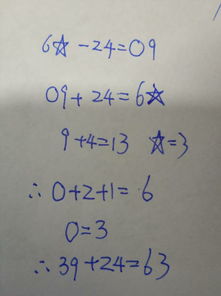 6☆-24=09
09+24=6☆
9+4=13 ☆=3
∴0+2+1=6
0=3
∴39+24=63